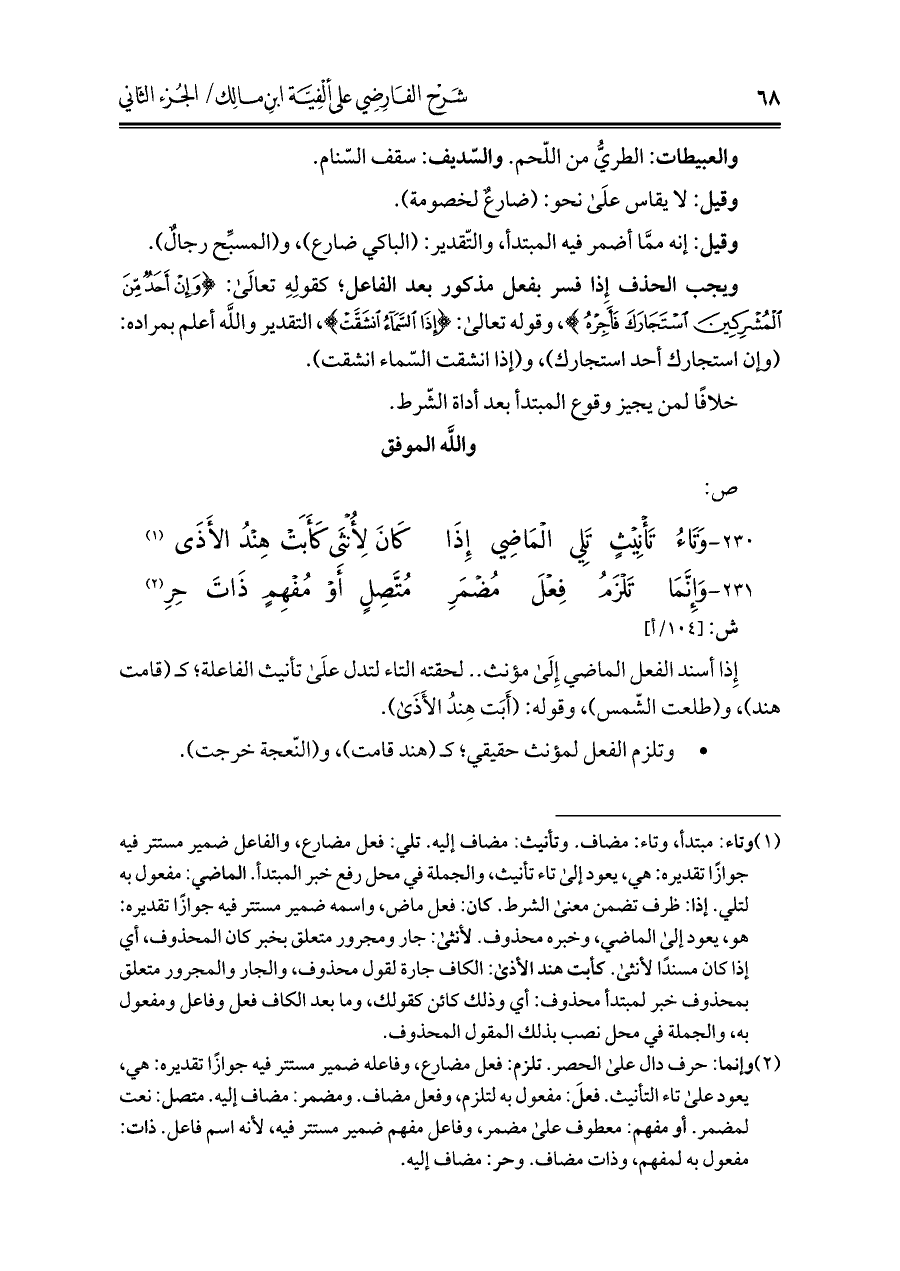 ٦٨
شَرْح الفَارِضِي على أَلْفِيَّة ابنِ مالِك/ الجُزء الثاني
والعبيطات: الطريُّ من اللّحم. والسّديف: سقف السّنام.
وقيل: لا يقاس علَىٰ نحو: (ضارعٌ لخصومة).
وقيل: إنه ممَّا أضمر فيه المبتدأ، والتّقدير: (الباكي ضارع)، و(المسبِّح رجالٌ).
ويجب الحذف إِذا فسر بفعل مذكور بعد الفاعل؛ كقولِهِ تعالَىٰ: ﴿وَإِنْ أَحَدٌ مِّنَ
الْمُشْرِكِينَ ٱسْتَجَارَكَ فَأَجِرْهُ﴾، وقوله تعالىٰ: ﴿إِذَا ٱلسَّمَآءُ ٱنشَقَّتْ﴾، التقدير واللَّه أعلم بمراده:
(وإن استجارك أحد استجارك)، و(إذا انشقت السّماء انشقت).
خلافًا لمن يجيز وقوع المبتدأ بعد أداة الشّرط.
واللَّه الموفق
ص:
٢٣٠-وَتَاءُ تَأْنِيْثٍ تَلِي الْمَاضِي إِذَا كَانَ لِأُنْثَى كَأَبَتْ هِنْدُ الأَذَى (١)
٢٣١-وَإِنَّمَا تَلْزَمُ فِعْلَ مُضْمَرِ مُتَّصِلٍ أَوْ مُفْهِمٍ ذَاتَ حِرِ (٢)
ش: [١٠٤/أ]
إِذا أسند الفعل الماضي إِلَىٰ مؤنث.. لحقته التاء لتدل علَىٰ تأنيث الفاعلة؛ كـ (قامت
هند)، و(طلعت الشّمس)، وقوله: (أَبَت هِندُ الأَذَىٰ).
• وتلزم الفعل لمؤنث حقيقي؛ كـ (هند قامت)، و(النّعجة خرجت).
(١)وتاء: مبتدأ، وتاء: مضاف. وتأنيث: مضاف إليه. تلي: فعل مضارع، والفاعل ضمير مستتر فيه
جوازًا تقديره: هي، يعود إلىٰ تاء تأنيث، والجملة في محل رفع خبر المبتدأ. الماضي: مفعول به
لتلي. إذا: ظرف تضمن معنىٰ الشرط. كان: فعل ماض، واسمه ضمير مستتر فيه جوازًا تقديره:
هو، يعود إلىٰ الماضي، وخبره محذوف. لأنثىٰ: جار ومجرور متعلق بخبر كان المحذوف، أي
إذا كان مسندًا لأنثىٰ. كأبت هند الأذىٰ: الكاف جارة لقول محذوف، والجار والمجرور متعلق
بمحذوف خبر لمبتدأ محذوف: أي وذلك كائن كقولك، وما بعد الكاف فعل وفاعل ومفعول
به، والجملة في محل نصب بذلك المقول المحذوف.
(٢)وإنما: حرف دال علىٰ الحصر. تلزم: فعل مضارع، وفاعله ضمير مستتر فيه جوازًا تقديره: هي،
يعود علىٰ تاء التأنيث. فعلَ: مفعول به لتلزم، وفعل مضاف. ومضمر: مضاف إليه. متصل: نعت
لمضمر. أو مفهم: معطوف علىٰ مضمر، وفاعل مفهم ضمير مستتر فيه، لأنه اسم فاعل. ذات:
مفعول به لمفهم، وذات مضاف. وحر: مضاف إليه.